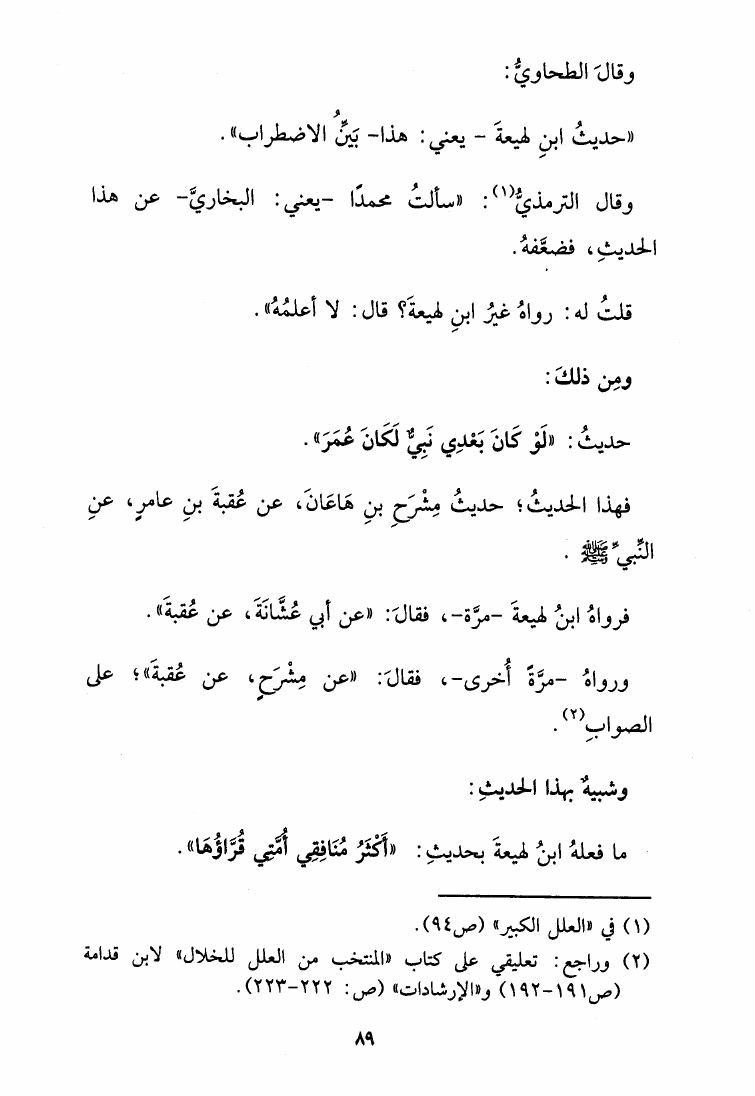 وقالَ الطحاويُّ:
«حديثُ ابنِ لهيعةَ - يعني: هذا- بَيِّنُ الاضطراب».
وقال الترمذيُّ(١): «سألتُ محمدًا -يعني: البخاريَّ- عن هذا
الحديثِ، فضعَّفهُ.
قلتُ له: رواهُ غيرُ ابنِ لهيعةَ؟ قال: لا أعلمُهُ».
ومِن ذلكَ:
حديثُ: «لَوْ كَانَ بَعْدِي نَبِيٌّ لَكَانَ عُمَرَ».
فهذا الحديثُ؛ حديثُ مِشْرَحِ بنِ هَاعَانَ، عن عُقبةَ بنِ عامرٍ، عنِ
النَّبيِّ ﷺ .
فرواهُ ابنُ لهيعةَ -مرَّة-، فقالَ: «عن أبي عُشَّانَةَ، عن عُقبةَ».
ورواهُ -مرَّةً أُخرى-، فقالَ: «عن مِشْرَحٍ، عن عُقبةَ»؛ على
الصوابِ(٢).
وشبيهٌ بهذا الحديثِ:
ما فعلهُ ابنُ لهيعةَ بحديثِ: «أَكْثَرُ مُنَافِقِي أُمَّتِي قُرَّاؤُهَا».
(١) في «العلل الكبير» (ص٩٤).
(٢) وراجع: تعليقي على كتاب «المنتخب من العلل للخلال» لابن قدامة
(ص١٩١-١٩٢) و«الإرشادات» (ص: ٢٢٢-٢٢٣).
٨٩